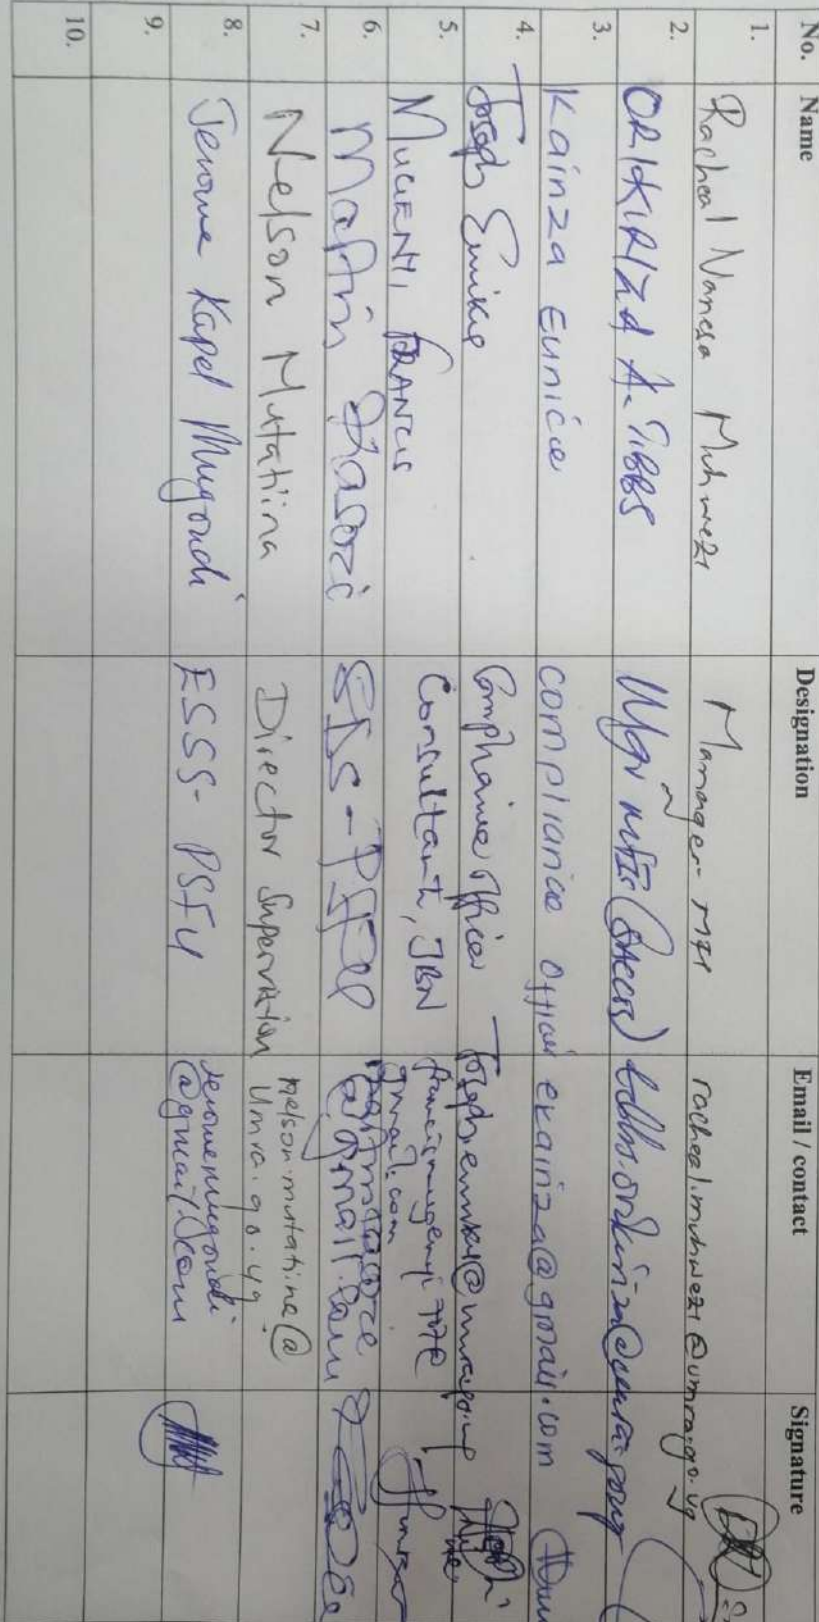 No. Name Designation Email / contact Signature
1. Racheal Nanesa Muhwezi Manager MFI racheal.muhwezi@umra.go.ug
2. ORIKIRIZA A. TIBBS Mgr
3. Kainza Eunice compliance officer ekainza@gmail.com
4. Joseph Emikie Compliance Officer
5. MUGENYI FRANCIS Consultant, JBN
gmail.com
6. Martin Kasozi
@gmail.com
7. Nelson Mutatiina Director Supervision nelson.mutatiina@
umra.go.ug
8. Jerome Kapel Mugondi ESSS- PSFU jeromemugondi
@gmail.com
9.
10.